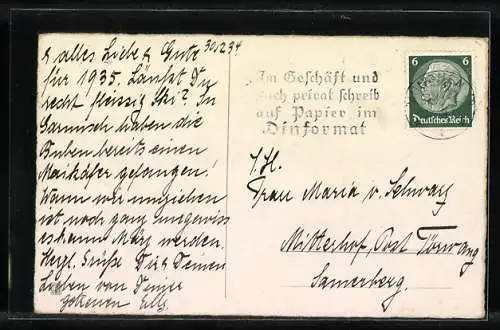 & alles Liebe & Gute 30.12.34
für 1935. Läufst Du
recht fleissig Ski? In
Garmisch haben die
Buben bereits einen
Maikäfer gefangen!
Wann wir umziehen
ist noch ganz ungewiss
es kann März werden.
Herzl. Grüße Dir & Deinen
Lieben von Deiner
Im Geschäft und
auch privat schreib
auf Papier im
Dinformat
6 6
Deutsches Reich
Frau Maria v. Schwarz
Mitterhof, Post Törwang
Samerberg.